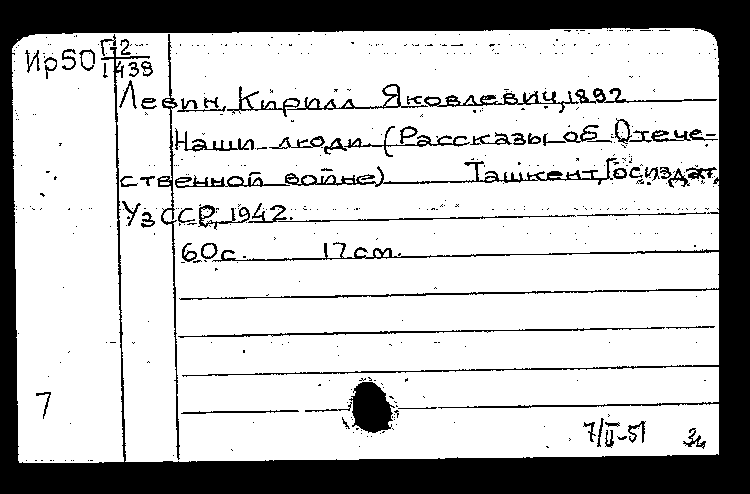 Ир50 Г-2
1439
Левин, Кирилл Яковлевич, 1892
Наши люди. (Рассказы об Отече-
ственной войне) Ташкент, Госиздат,
УзССР, 1942.
60с. 17cm.
7
7/II-51